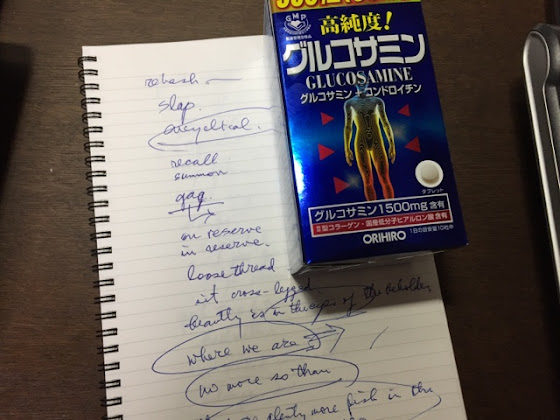 rehash
slap.
encyclical.
recall
summon
gag.
on reserve
in reserve.
loose thread
sit cross-legged
beauty is in the eyes of the beholder
where we are
no more so than.
plenty more fish in the
GMP
高純度!
グルコサミン
GLUCOSAMINE
グルコサミン+コンドロイチン
タブレット
グルコサミン1500mg 含有
II型コラーゲン・国産低分子ヒアルロン酸 含有
1日の目安量10粒中
ORIHIRO